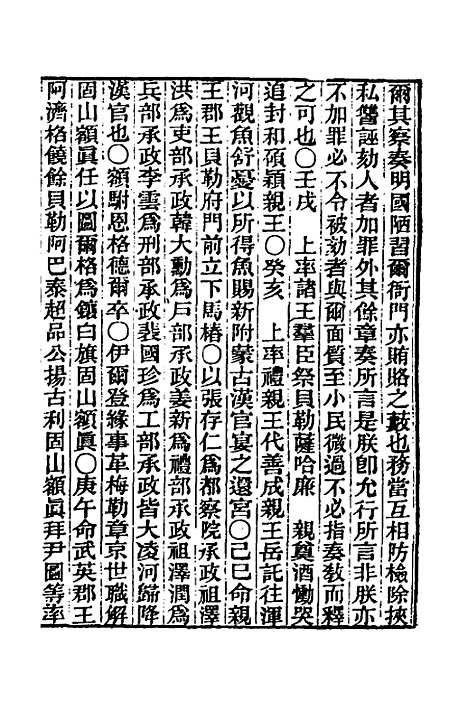 爾其察奏明國陋習爾衙門亦賄賂之藪也務當互相防檢除挾
私讐誣劾人者加罪外其餘章奏所言是朕卽允行所言非朕亦
不加罪必不令被劾者與爾面質至小民微過不必指奏敎而釋
之可也〇壬戌　上率諸王羣臣祭貝勒薩哈廉　親奠酒慟哭
追封和碩穎親王〇癸亥　上率禮親王代善成親王岳託往渾
河觀魚舒憂以所得魚賜新附蒙古漢官宴之還宮〇己巳命親
王郡王貝勒府門前立下馬樁〇以張存仁爲都察院承政祖澤
洪爲吏部承政韓大勳爲戶部承政姜新爲禮部承政祖澤潤爲
兵部承政李雲爲刑部承政裴國珍爲工部承政皆大凌河歸降
漢官也〇額駙恩格德爾卒〇伊爾登緣事革梅勒章京世職解
固山額眞任以圖爾格爲鑲白旗固山額眞〇庚午命武英郡王
阿濟格饒餘貝勒阿巴泰超品公揚古利固山額眞拜尹圖等率